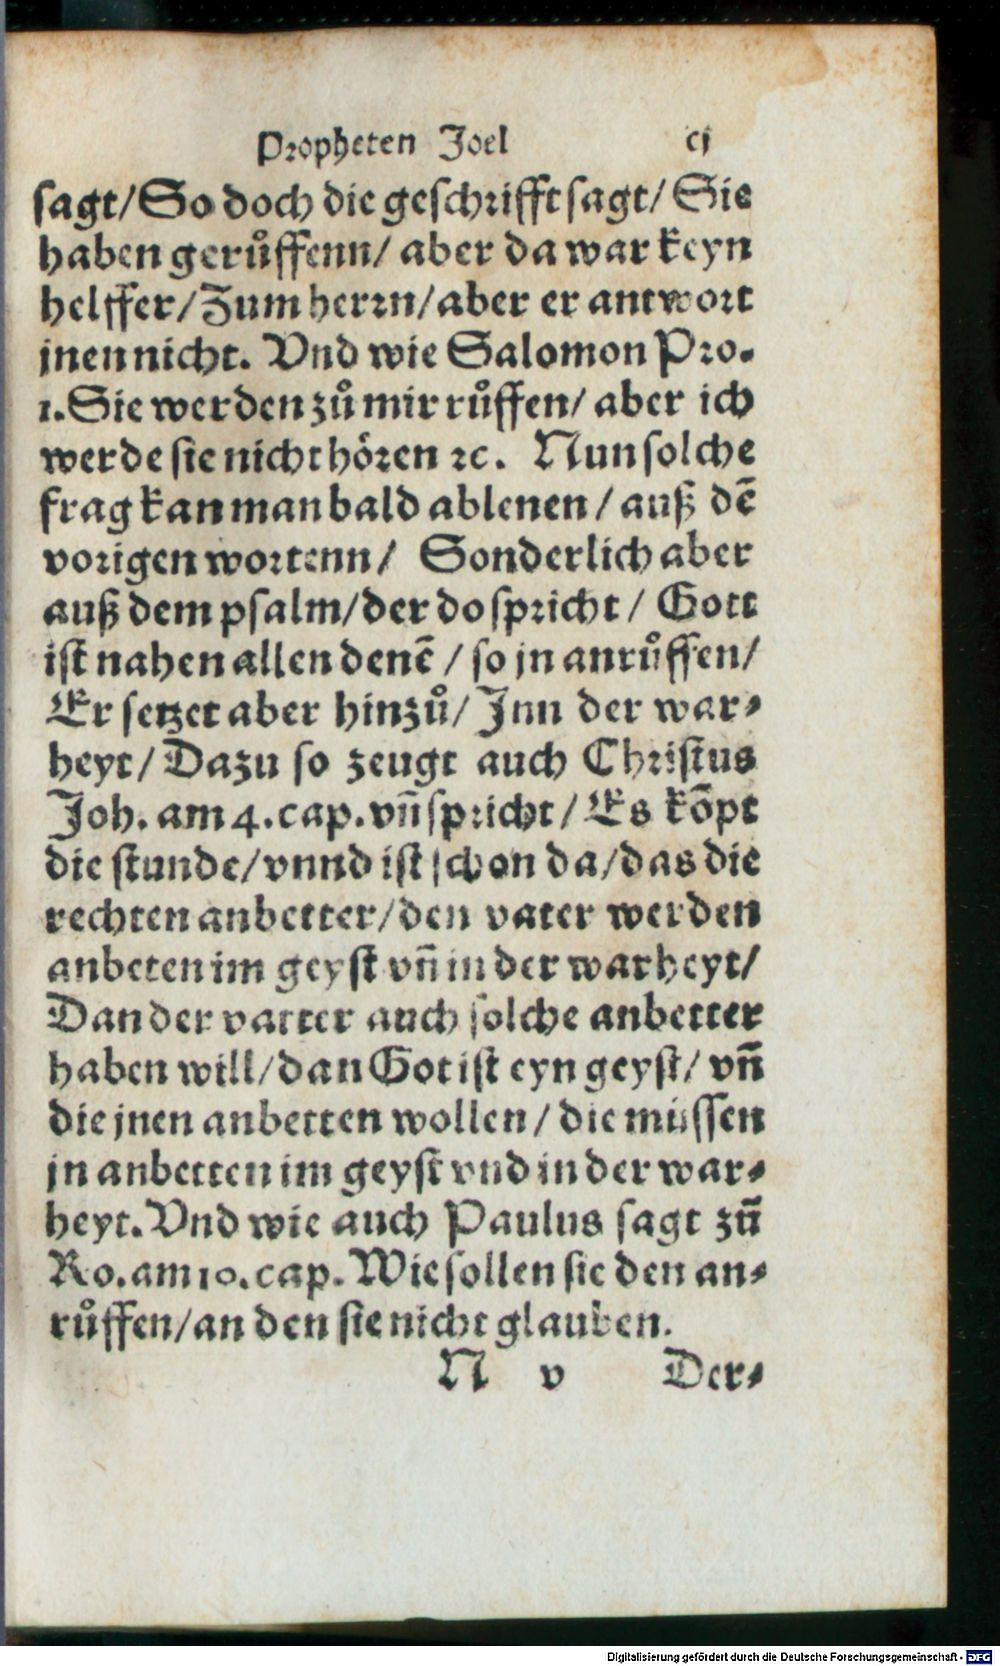 Propheten Joel cj
sagt/ So doch die geschrifft sagt/ Sie
haben gerůffenn/ aber da war keyn
helffer/ Zum herrn/ aber er antwort
jnen nicht. Vnd wie Salomon Pro.
1. Sie werden zů mir růffen/ aber ich
werde sie nicht hören ꝛc. Nun solche
frag kan man bald ablenen/ auß dē
vorigen wortenn/ Sonderlich aber
auß dem psalm/ der do spricht/ Gott
ist nahen allen denē/ so jn anrůffen/
Er setzet aber hinzů/ Jnn der war⸗
heyt/ Dazu so zeugt auch Christus
Joh. am 4. cap. vn̄ spricht/ Es kōpt
die stunde/ vnnd ist schon da/ das die
rechten anbetter/ den vater werden
anbeten im geyst vn̄ in der warheyt/
Dan der vatter auch solche anbetter
haben will/ dan Got ist eyn geyst/ vn̄
die jnen anbetten wollen/ die müssen
jn anbetten im geyst vnd in der war⸗
heyt. Vnd wie auch Paulus sagt zū
Ro. am 10. cap. Wie sollen sie den an⸗
růffen/ an den sie nicht glauben.
N v Der⸗
Digitalisierung gefördert durch die Deutsche Forschungsgemeinschaft - DFG